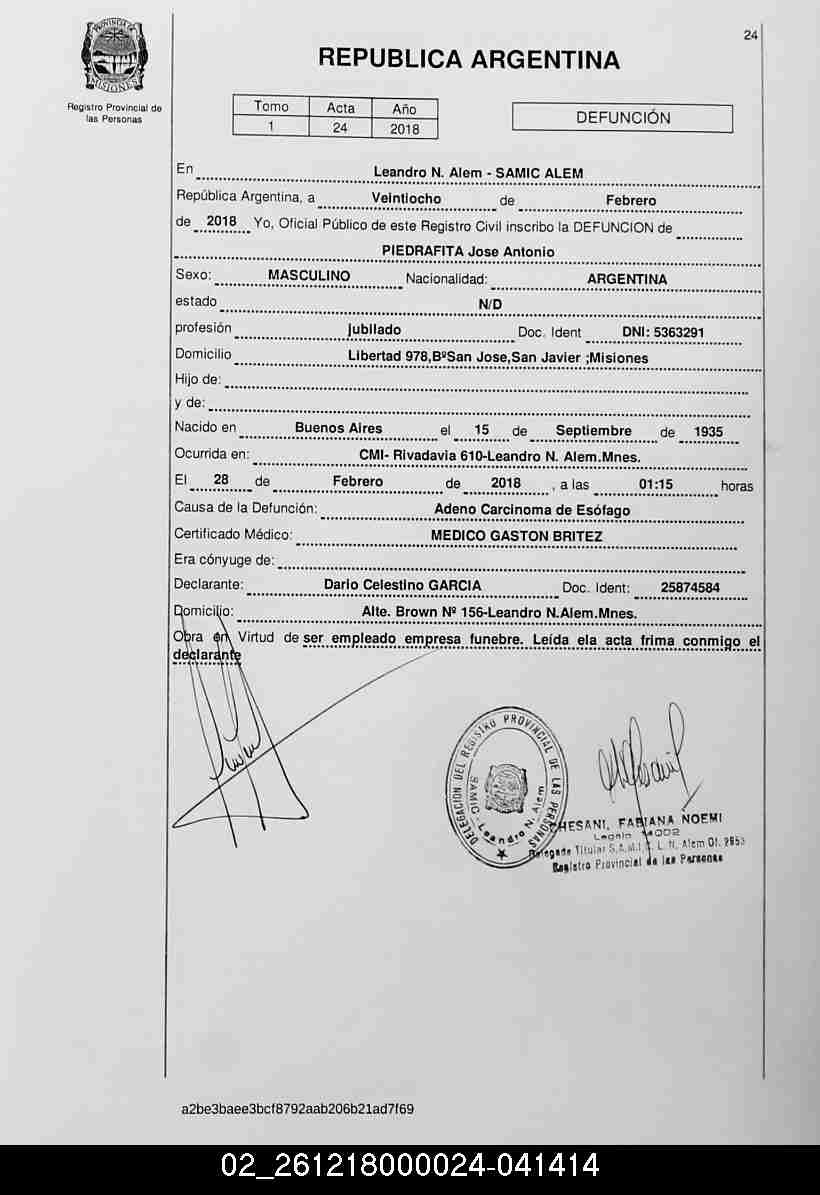 24
PROVINCIA DE
MISIONES
Registro Provincial de
las Personas
REPUBLICA ARGENTINA
Tomo Acta Año
1 24 2018
DEFUNCIÓN
En Leandro N. Alem - SAMIC ALEM
República Argentina, a Veintiocho de Febrero
de 2018 Yo, Oficial Público de este Registro Civil inscribo la DEFUNCION de
PIEDRAFITA Jose Antonio
Sexo: MASCULINO Nacionalidad: ARGENTINA
estado N/D
profesión jubilado Doc. Ident DNI: 5363291
Domicilio Libertad 978,BºSan Jose,San Javier ;Misiones
Hijo de:
y de:
Nacido en Buenos Aires el 15 de Septiembre de 1935
Ocurrida en: CMI- Rivadavia 610-Leandro N. Alem.Mnes.
El 28 de Febrero de 2018 , a las 01:15 horas
Causa de la Defunción: Adeno Carcinoma de Esófago
Certificado Médico: MEDICO GASTON BRITEZ
Era cónyuge de:
Declarante: Dario Celestino GARCIA Doc. Ident: 25874584
Domicilio: Alte. Brown Nº 156-Leandro N.Alem.Mnes.
Obra en Virtud de ser empleado empresa funebre. Leída ela acta frima conmigo el
declarante
DELEGACION DEL REGISTRO PROVINCIAL DE LAS PERSONAS
SAMIC - Leandro N. Alem
CHESANI, FABIANA NOEMI
Legajo
Delegada Titular S.A.M.I.C. L. N. Alem Of. 2653
Registro Provincial de las Personas
a2be3baee3bcf8792aab206b21ad7f69
02_261218000024-041414